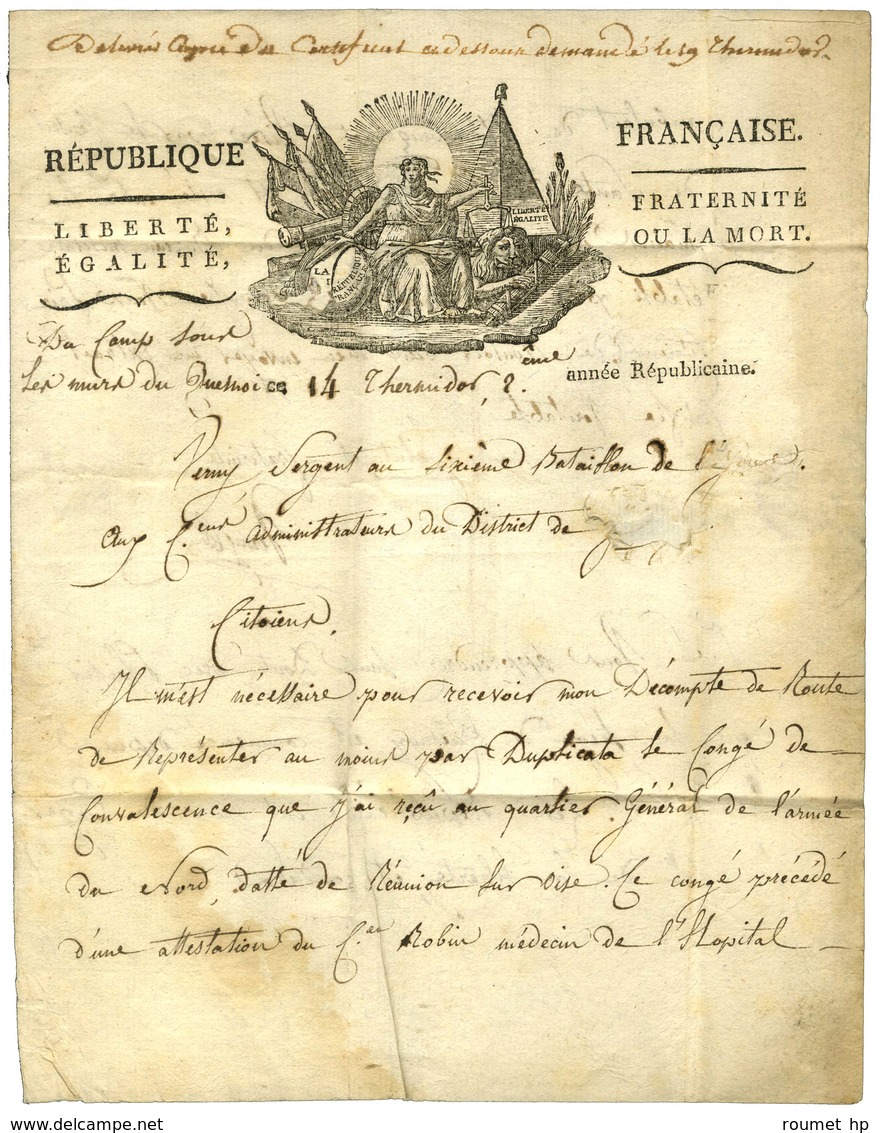 Delivré Copie du Certificat cidessous demandé le 19 Thermidor.
RÉPUBLIQUE FRANÇAISE.
LIBERTÉ, FRATERNITÉ
ÉGALITÉ, OU LA MORT.
LIBERTÉ
ÉGALITÉ
LA
RÉPUBLIQUE
Du Camp sous
Les murs du Quesnoi ce 14 Thermidor, 2.ème année Républicaine.
Sergent au Sixième Bataillon de
Aux C.ens Administrateurs du District de
Citoiens,
Il m'est nécessaire pour recevoir mon Décompte de Route
de Représenter au moins par Duplicata le Congé de
Convalescence que j'ai reçû au quartier Général de l'armée
du Nord, datté de Réunion sur Oise. Ce congé précédé
d'une attestation du C.en Robin médecin de l'Hopital
roumet hp